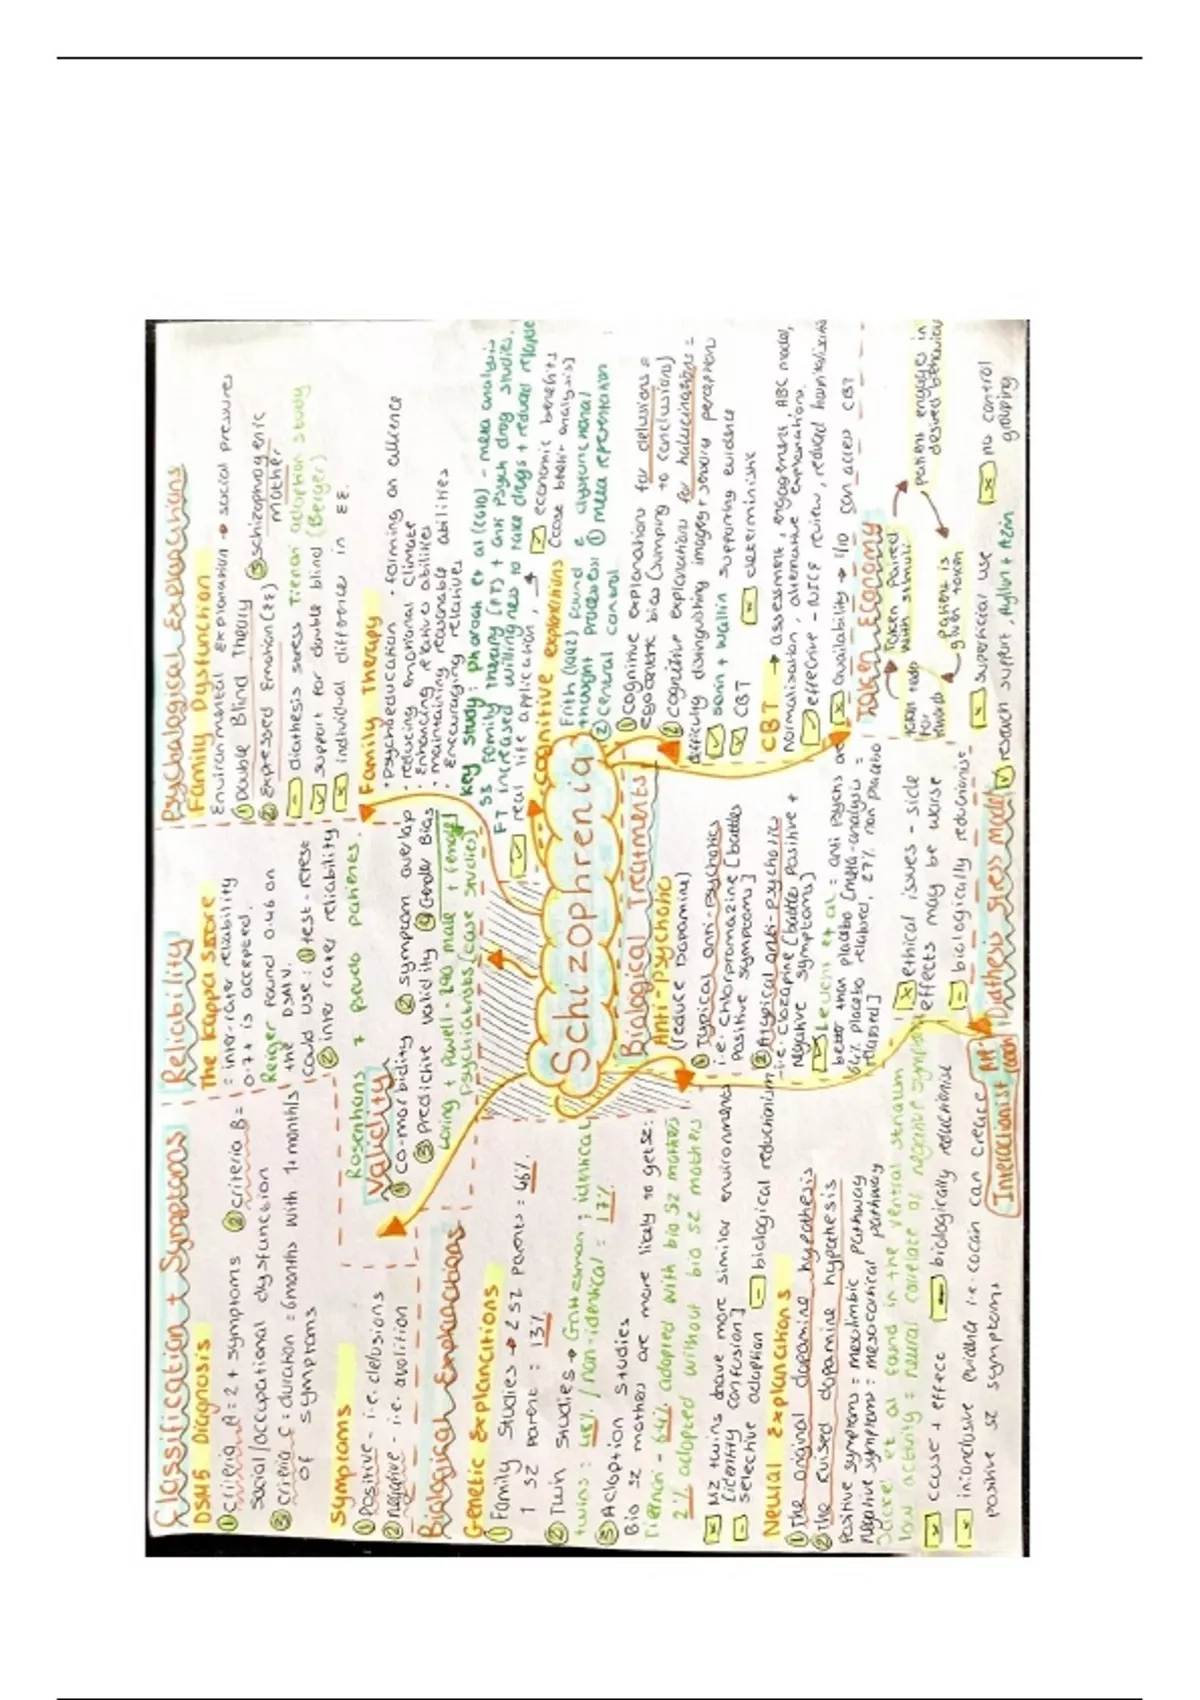 Classification + Symptoms
DSM5 Diagnosis
① Criteria A = 2 + symptoms ② criteria B =
social/occupational dysfunction
③ criteria C = duration = 6 months with 1+ months
of symptoms
Symptoms
① Positive - i.e. delusions
② negative - i.e. avolition
Reliability
The kappa score
= inter-rater reliability
0.7+ is accepted.
Reiger found 0.46 on
the DSM V.
could use: ① test-retest
② inter rater reliability
Rosenhans 7 pseudo patients.
Validity
① co-morbidity ② symptom overlap
③ predictive validity ④ Gender Bias
Loring + Powell - 290 male + female
psychiatrists (case studies)
Psychological Explanations
Family Dysfunction
Environmental Explanation → social pressures
① Double Blind Theory ③ schizophrogenic
mother
② Expressed Emotion (EE)
diathesis stress Tienari adoption study
support for double blind (Berger)
individual difference in EE.
Family Therapy
• Psychoeducation • forming an allience
• reducing emotional climate
• Enhancing relatives abilities
• maintaining reasonable abilities
• Encouraging relatives
Key study: Pharoah et al (2010) - meta analysis
53 family therapy (FT) + anti psych drug studies.
FT increased willingness to take drugs + reduced relapse
real life application, economic benefits
(cost benefit analysis)
cognitive explanations
Frith (1992) found dysfunctional
thought processes ① meta representation
② central control
① cognitive explanations for delusions =
egocentric bias (jumping to conclusions)
② cognitive explanations for hallucinations =
difficulty distinguishing imagery + sensory perception
Sarin + Wallin supporting evidence
CBT
deterministic
CBT → assessment, engagement, ABC model,
normalisation, alternative explanations.
effective - NICE review, reduced hospitalisation
availability → 1/10 can access CBT
Token Economy
Token paired
with stimuli
patient engages in
desired behaviour
patient is
given token
Token
for
superficial use
no control
grouping
research support, Ayllon + Azrin
Schizophrenia
Biological Explanations
Genetic Explanations
① Family studies → 2 SZ parents = 46%
1 SZ parent = 13%
② Twin Studies → Gottesman; identical
twins = 48% / non-identical = 17%
③ Adoption studies
Bio SZ mothers are more likely to get SZ:
Tienari - 6.4% adopted with bio SZ mothers
2% adopted without bio SZ mothers
MZ twins have more similar environments
[identity confusion]
selective adoption
biological reductionism
Neural Explanations
① The original dopamine hypothesis
② The revised dopamine hypothesis
Positive symptoms = mesolimbic pathway
Negative symptoms = mesocortical pathway
et al found in the ventral striatum
low activity = neural correlate of negative symptoms
cause + effect
biologically reductionist
inconclusive evidence i.e. cocain can create
positive SZ symptoms
Biological Treatments
Anti-psychotic
(reduce Dopamine)
① Typical anti-psychotics
i.e. chlorpromazine [battles
positive symptoms]
② Atypical anti-psychotics
i.e. clozapine [battle positive +
Negative symptoms]
et al = anti psychs are
better than placebo [meta-analysis =
64% placebo relapsed, 27% non placebo
relapsed]
ethical issues - side
effects may be worse
biologically reductionist
Interactionist
Diathesis stress model